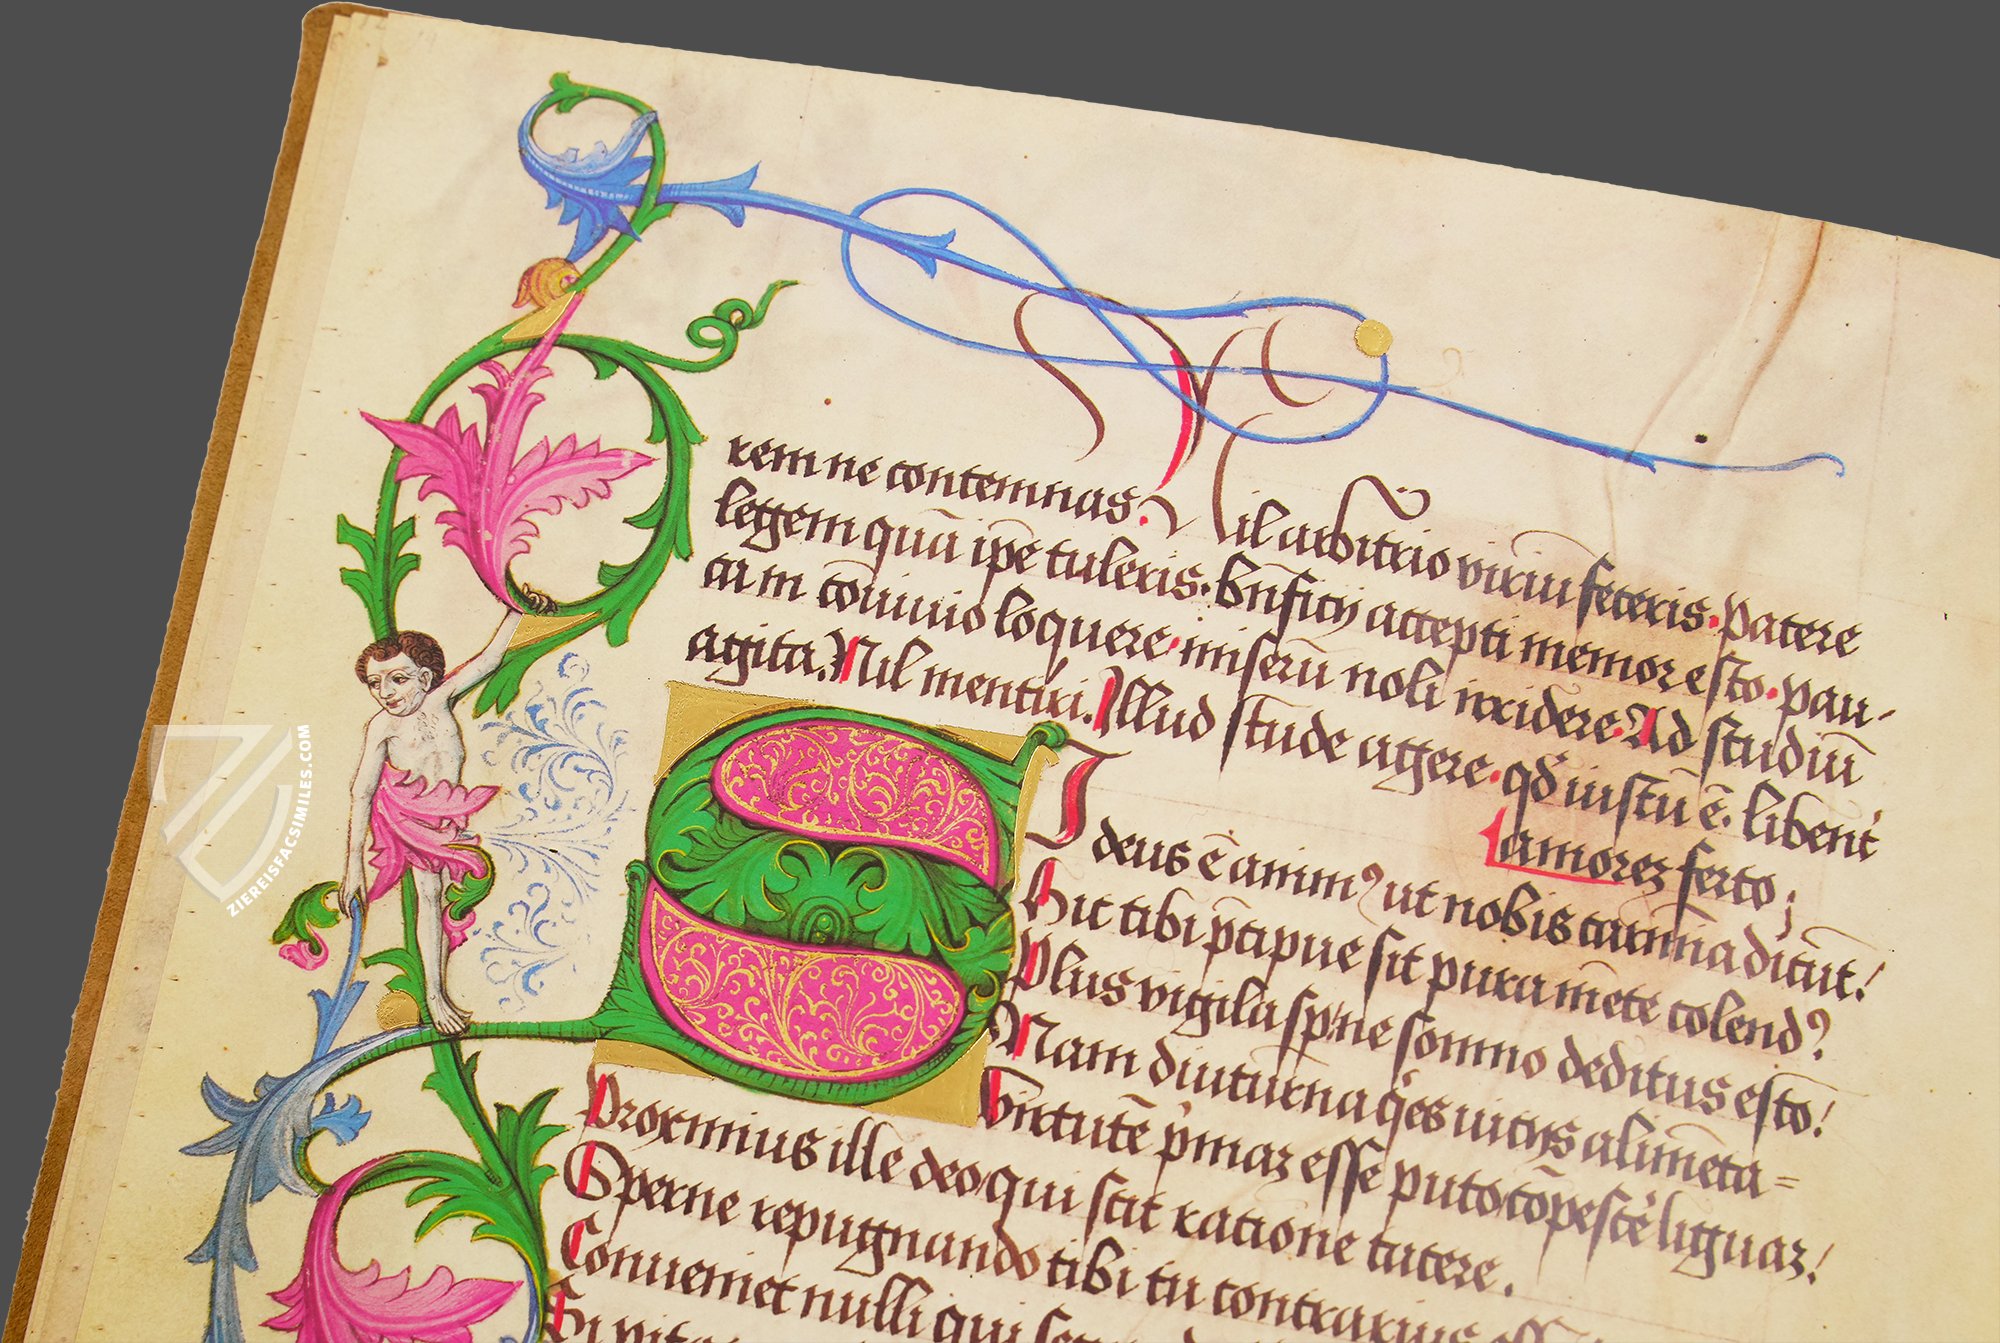 rem ne contemnas. Nil arbitrio viriū feceris. Patere
legem quā ip̄e tuleris. Bn̄ficij accepti memor esto. pau-
ca in cōuiuio loquere. miserū noli irridere. Ad studiū
agita. Nil mentiri. Illud stude agere. qd̄ iustū ē. libent̕
amorez ferto;
I
deus ē animꝰ ut nobis carmīa dicūt!
Hic tibi p̄cipue sit pura mēte colendꝰ
Plus vigila sp̄ ne somno deditus esto!
Nam diuturna q̕es uicijs alimēta=
Virtutē p̕maz esse puto cōpescē liguaz!
Proxmius ille deo qui scit ratione tacere.
Sperne repugnando tibi tu contrarius esse
Conueniet nulli qui
Si vita
ZIEREISFACSIMILES.COM